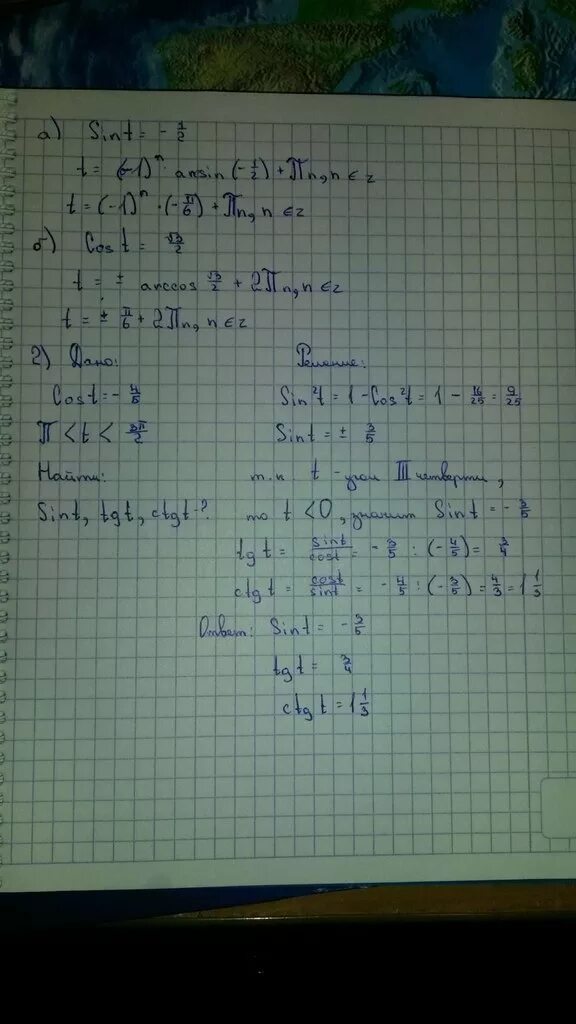 а) Sin t = - 1/2
t = (-1)ⁿ · arcsin (-1/2) + πn, n ∈ z
t = (-1)ⁿ · (-π/6) + πn, n ∈ z
б) Cos t = √3/2
t = ± arccos √3/2 + 2πn, n ∈ z
t = ± π/6 + 2πn, n ∈ z
2) Дано:
Cos t = - 4/5
π < t < 3π/2
Найти:
Sin t, tg t, ctg t - ?
Решение:
Sin²t = 1 - Cos²t = 1 - 16/25 = 9/25
Sin t = ± 3/5
т.к. t - угол III четверти,
то t < 0, значит Sin t = - 3/5
tg t = sin t/cos t = - 3/5 : (- 4/5) = 3/4
ctg t = cos t/sin t = - 4/5 : (- 3/5) = 4/3 = 1 1/3
Ответ: Sin t = - 3/5
tg t = 3/4
ctg t = 1 1/3